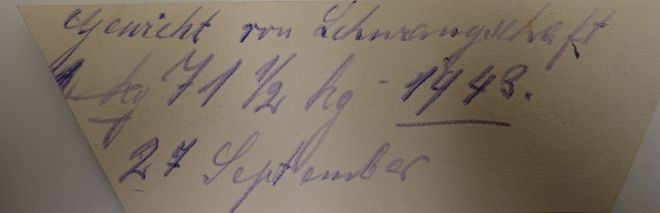 Gewicht von Schwangschaft
kg 71 1/2 kg - 1943.
27 September